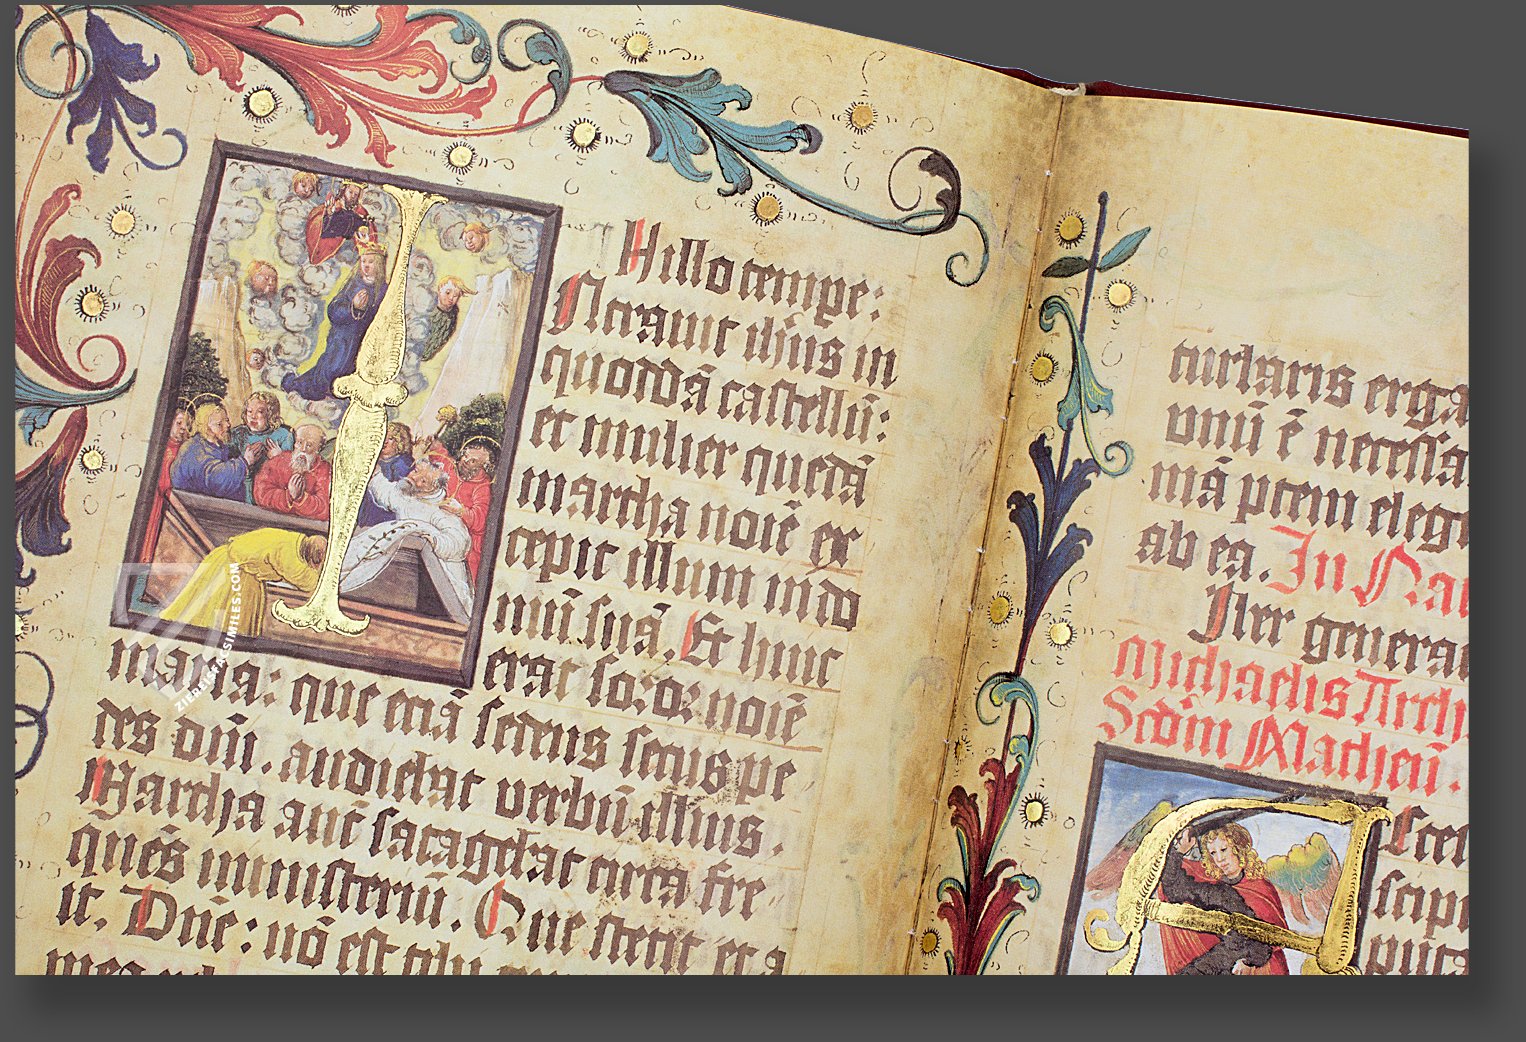 N illo tempe:
Intrauit ihūs in
quoddā castellū:
et mulier quedā
martha noīe ex
cepit illum in do
mū suā. Et huic
erat soror noīe
maria: que etiā sedens secus pe
des dnī. audiebat verbū illius.
Martha aūt satagebat circa fre
quēs ministeriū. Que stetit et a
it. Dnē: nō est
turbaris erga
vnū ē necessa
mā ptem eleg
ab ea. In
Iter genera
Michaelis Arch
Scdm Matheū.
ZIEREIS FACSIMILES.COM